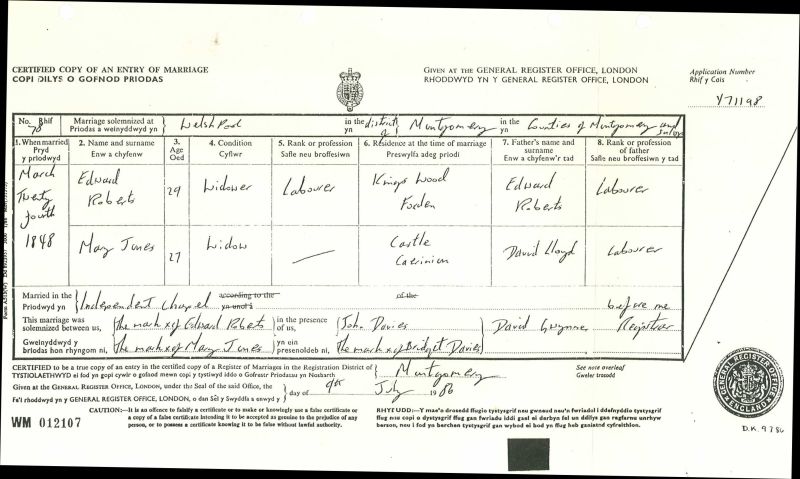 CERTIFIED COPY OF AN ENTRY OF MARRIAGE
COPI DILYS O GOFNOD PRIODAS
GIVEN AT THE GENERAL REGISTER OFFICE, LONDON
RHODDWYD YN Y GENERAL REGISTER OFFICE, LONDON
Application Number
Rhif y Cais
Y71198
No. Rhif 70 Marriage solemnized at Welsh Pool in the district of Montgomery in the Counties of Montgomery and
Priodas a weinyddwyd yn yn yn
1. When married
Pryd
y priodwyd
2. Name and surname
Enw a chyfenw
3. Age
Oed
4. Condition
Cyflwr
5. Rank or profession
Safle neu broffesiwn
6. Residence at the time of marriage
Preswylfa adeg priodi
7. Father's name and surname
Enw a chyfenw'r tad
8. Rank or profession of father
Safle neu broffesiwn y tad
March
Twenty
fourth
1848
Edward
Roberts
29
Widower
Labourer
Kings Wood
Forden
Edward
Roberts
Labourer
Mary Jones
27
Widow
Castle
Caerinion
David Lloyd
Labourer
Married in the Independent Chapel according to the of the before me
Priodwyd yn yn unol â
This marriage was solemnized between us, The mark x of Edward Roberts in the presence of us, John Davies David Gwynne Registrar
Gweinyddwyd y briodas hon rhyngom ni, The mark x of Mary Jones yn ein presenoldeb ni, The mark x of Bridget Davies
CERTIFIED to be a true copy of an entry in the certified copy of a Register of Marriages in the Registration District of Montgomery
TYSTIOLAETHWYD ei fod yn gopi cywir o gofnod mewn copi y tystiwyd iddo o Gofrestr Priodasau yn Nosbarth
See note overleaf
Gweler trosodd
Given at the GENERAL REGISTER OFFICE, LONDON, under the Seal of the said Office, the 9th day of July 1986
Fe'i rhoddwyd yn y GENERAL REGISTER OFFICE, LONDON, o dan Sêl y Swyddfa a enwyd y
CAUTION:—It is an offence to falsify a certificate or to make or knowingly use a false certificate or
a copy of a false certificate intending it to be accepted as genuine to the prejudice of any
person, or to possess a certificate knowing it to be false without lawful authority.
WM 012107
GENERAL REGISTER OFFICE
ENGLAND